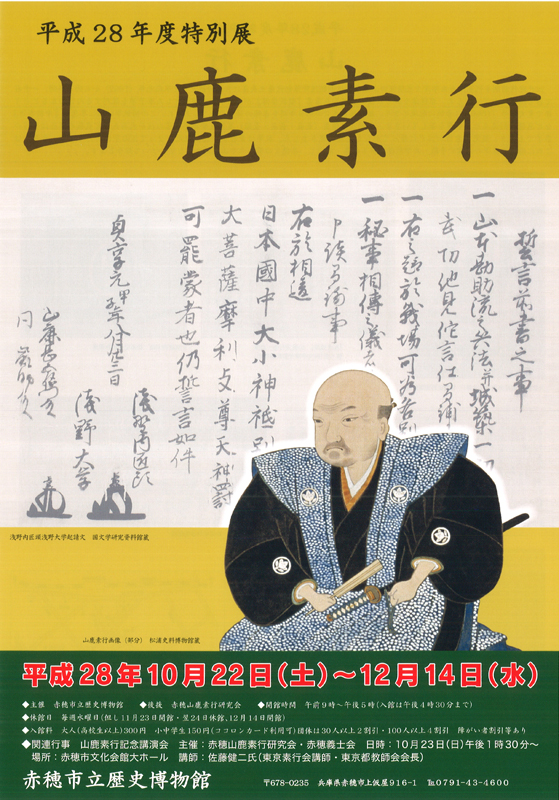 平成28年度特別展
山鹿素行
誓言前書之事
一 山本勘助流之兵法并城築一切
一 右之趣於戦場可為各別
一 秘事相傳之儀者
右於相違
日本國中大小神祇別
大菩薩摩利支尊天神罰
可罷蒙者也仍誓言如件
貞享元甲子年八月廿三日
浅野内匠頭
浅野大学
浅野内匠頭浅野大学起請文 国文学研究資料館蔵
山鹿素行画像(部分) 松浦史料博物館蔵
平成28年10月22日(土)~12月14日(水)
◆主催 赤穂市立歴史博物館 ◆後援 赤穂山鹿素行研究会 ◆開館時間 午前9時~午後5時(入館は午後4時30分まで)
◆休館日 毎週水曜日(但し11月23日開館・翌24日休館、12月14日開館)
◆入館料 大人(高校生以上)300円 小中学生150円(ココロンカード利用可)団体は30人以上2割引・100人以上4割引 障がい者割引等あり
◆関連行事 山鹿素行記念講演会 主催:赤穂山鹿素行研究会・赤穂義士会 日時:10月23日(日)午後1時30分~
場所:赤穂市文化会館大ホール 講師:佐藤健二氏(東京素行会講師・東京都教師会会長)
赤穂市立歴史博物館 〒678-0235 兵庫県赤穂市上仮屋916-1 ℡0791-43-4600